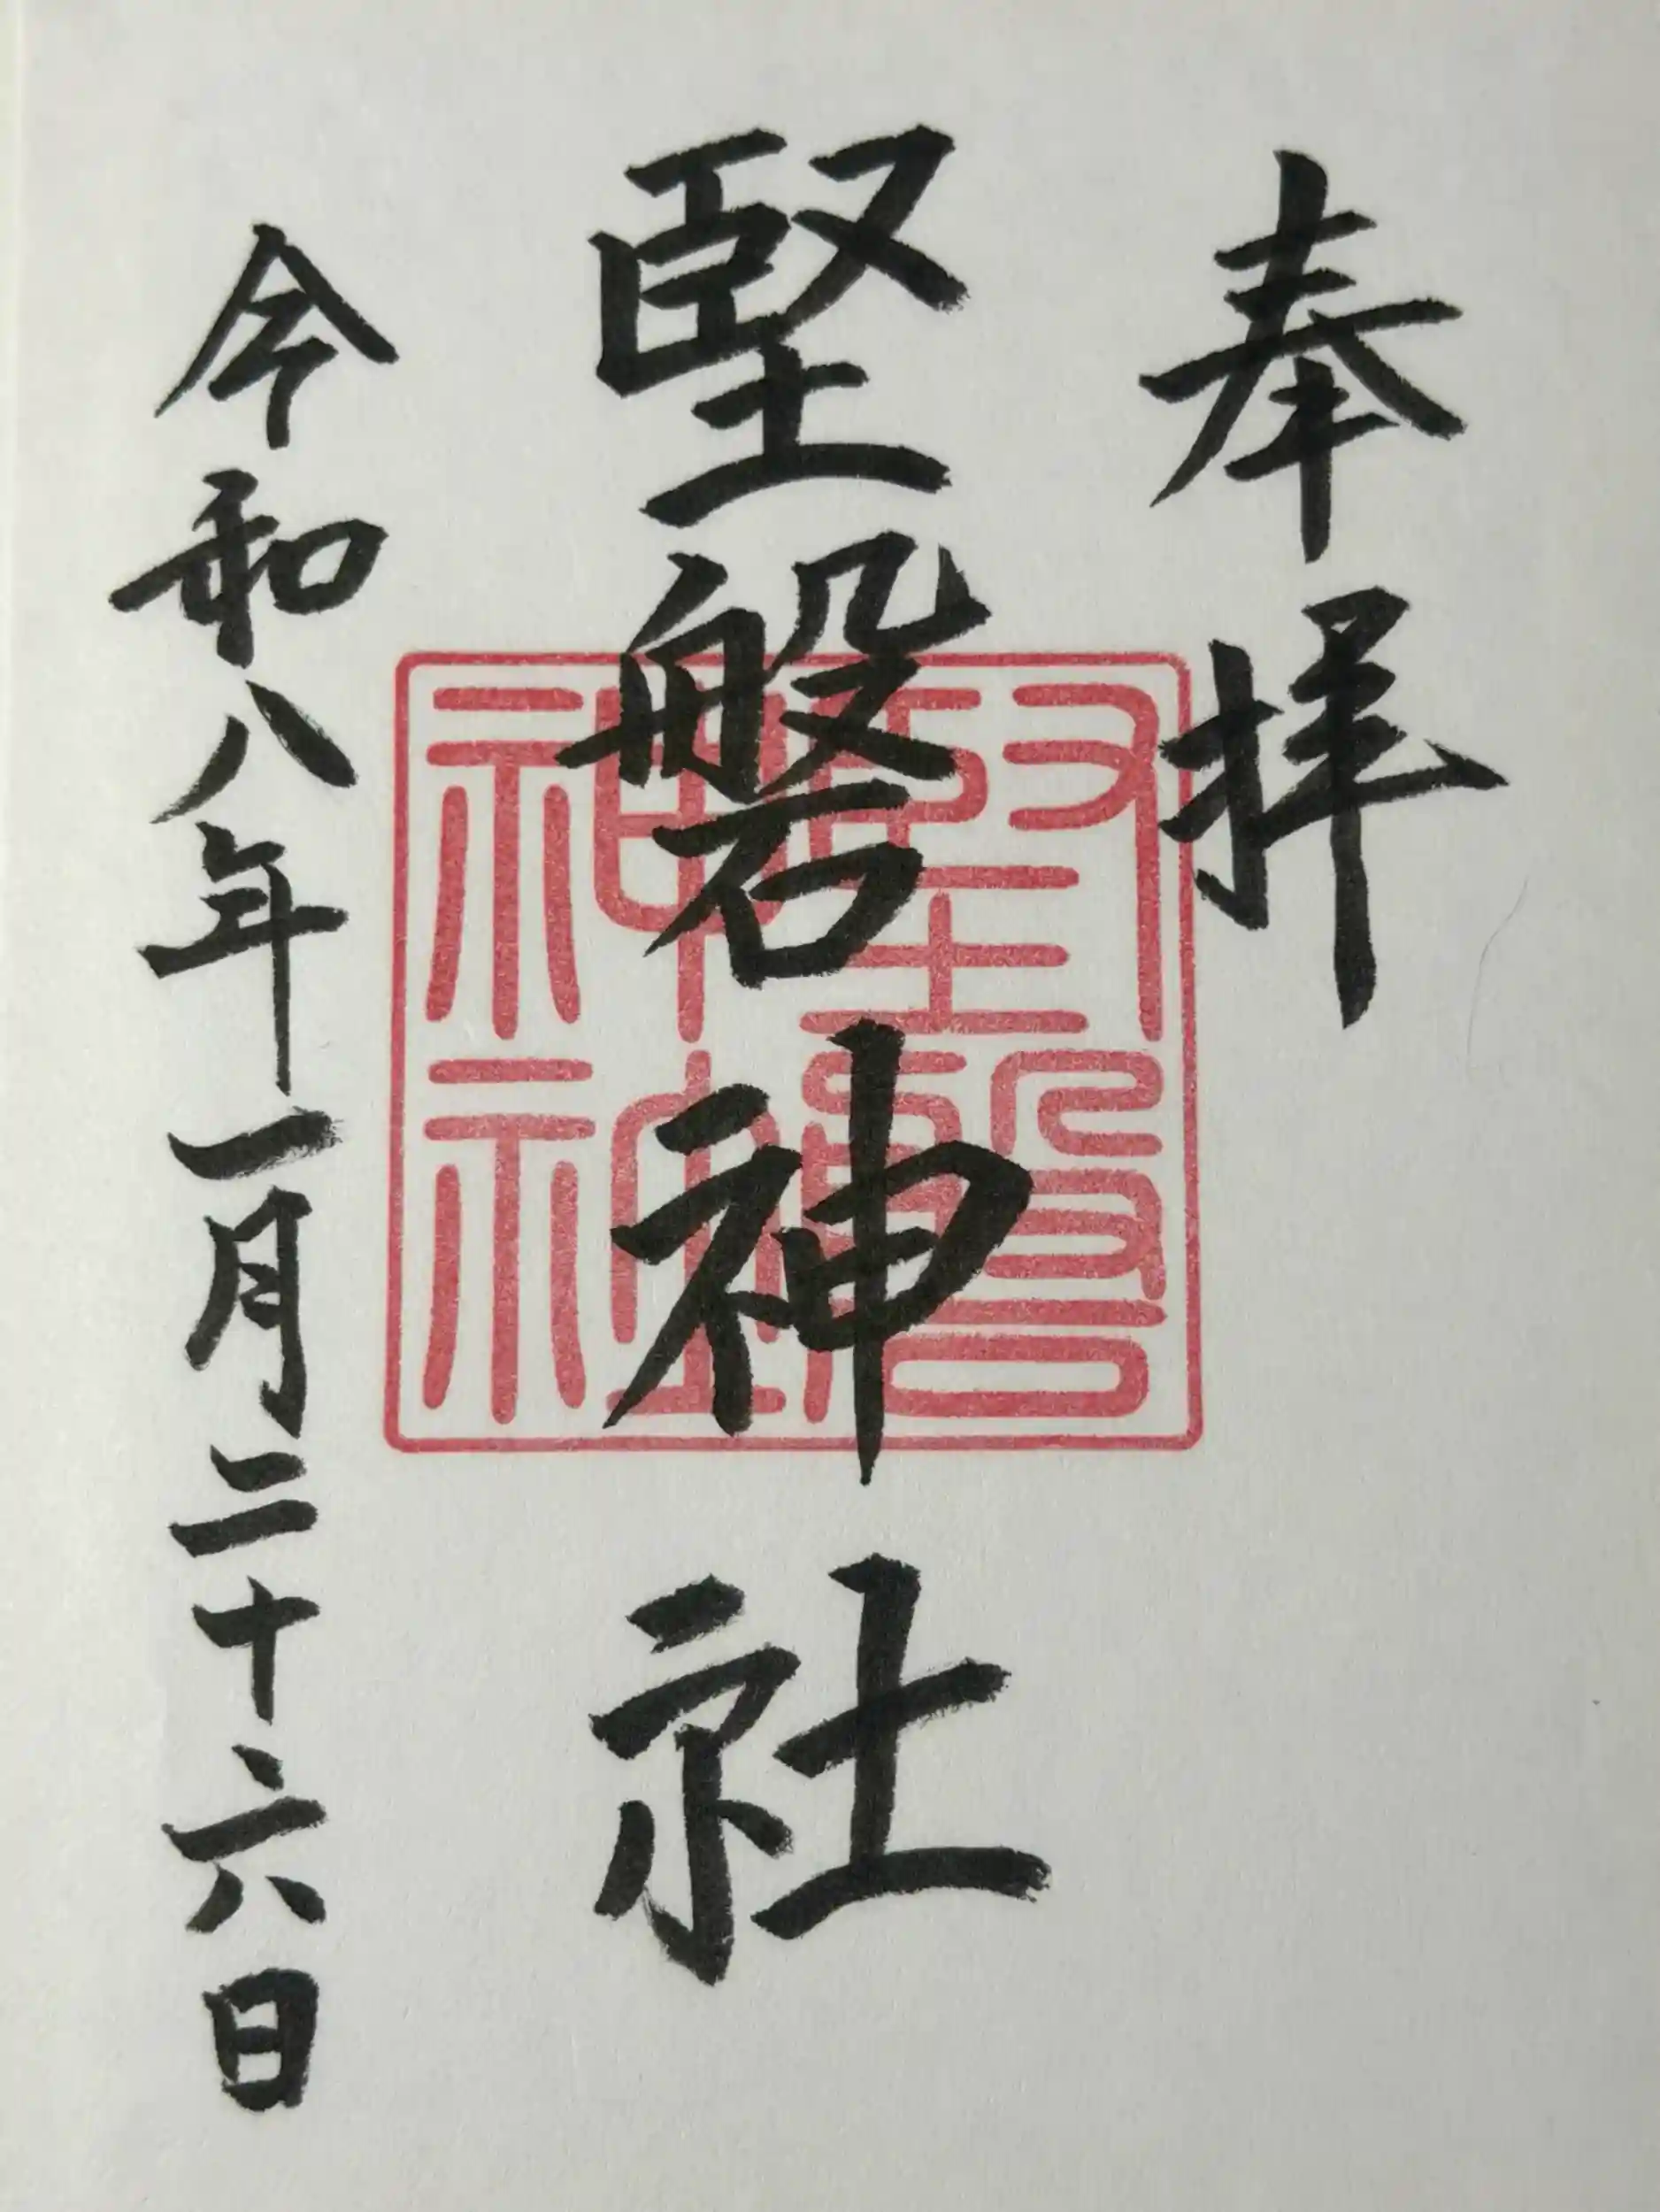 奉拝
堅磐神社
令和八年一月二十六日
堅磐
神社